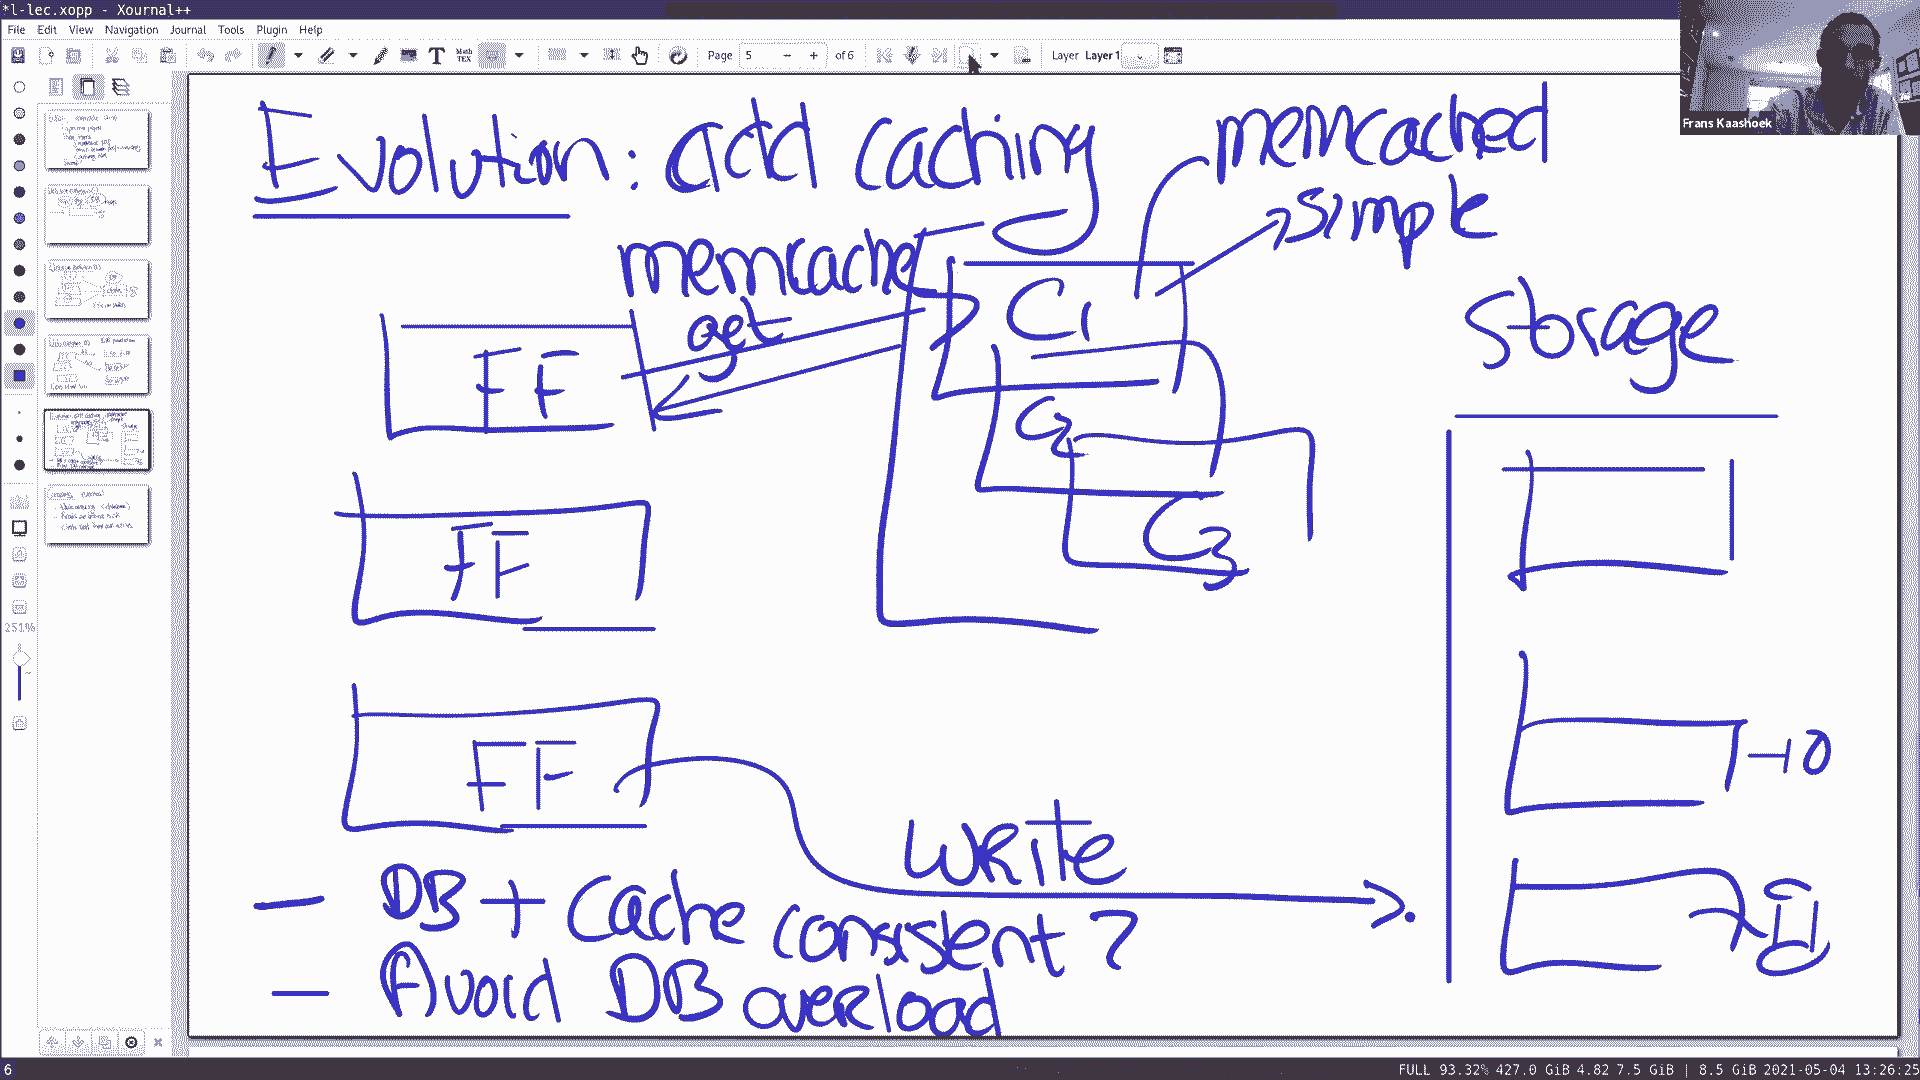 *l-lec.xopp - Xournal++
File Edit View Navigation Journal Tools Plugin Help
Page 5 - + of 6 Layer Layer 1
Frans Kaashoek
Evolution: add caching
memcached
simple
memcache
get
C1
C2
C3
Storage
FF
FF
FF
251%
write
DB + cache consistent?
Avoid DB overload
6
FULL 93.32% 427.0 GiB 4.82 7.5 GiB | 8.5 GiB 2021-05-04 13:26:25